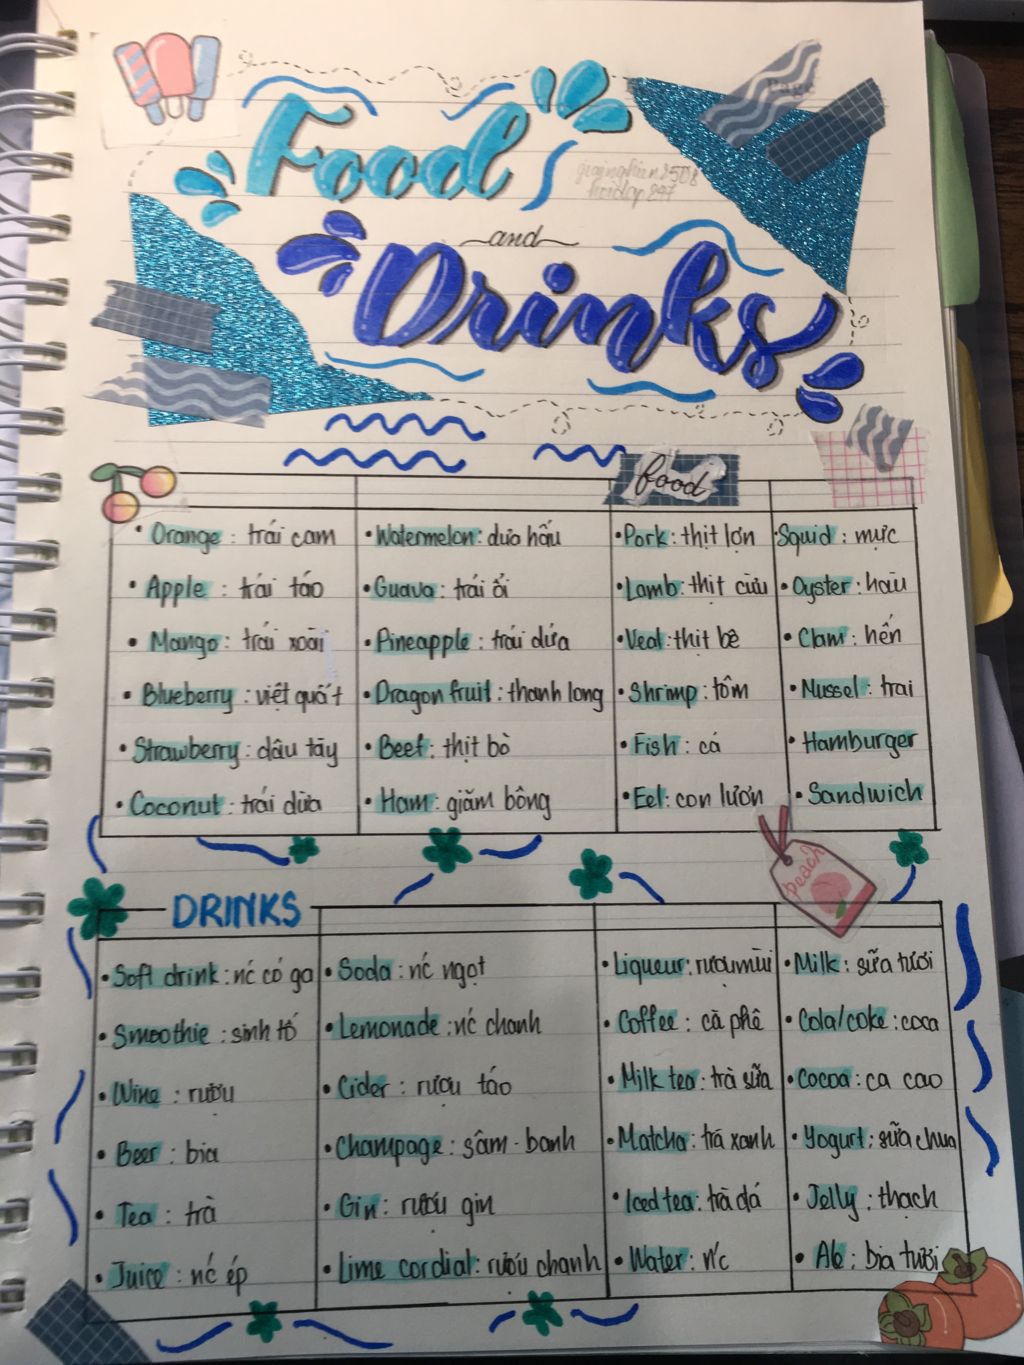 Food
and
Drinks
food
• Orange : trái cam
• Apple : trái táo
• Mango : trái xoài
• Blueberry : việt quất
• Strawberry : dâu tây
• Coconut : trái dừa
• Watermelon : dưa hấu
• Guava : trái ổi
• Pineapple : trái dứa
• Dragon fruit : thanh long
• Beef : thịt bò
• Ham : giăm bông
• Pork : thịt lợn
• Lamb : thịt cừu
• Veal : thịt bê
• Shrimp : tôm
• Fish : cá
• Eel : con lươn
• Squid : mực
• Oyster : hàu
• Clam : hến
• Mussel : trai
• Hamburger
• Sandwich
peach
DRINKS
• Soft drink : nć có ga
• Smoothie : sinh tố
• Wine : rượu
• Beer : bia
• Tea : trà
• Juice : nć ép
• Soda : nć ngọt
• Lemonade : nć chanh
• Cider : rượu táo
• Champage : sâm - banh
• Gin : rượu gin
• Lime cordial : rượu chanh
• Liqueur : rượu mùi
• Coffee : cà phê
• Milk tea : trà sữa
• Matcha : trà xanh
• Iced tea : trà đá
• Water : nć
• Milk : sữa tươi
• Cola/coke : coca
• Cocoa : ca cao
• Yogurt : sữa chua
• Jelly : thạch
• Ale : bia tươi